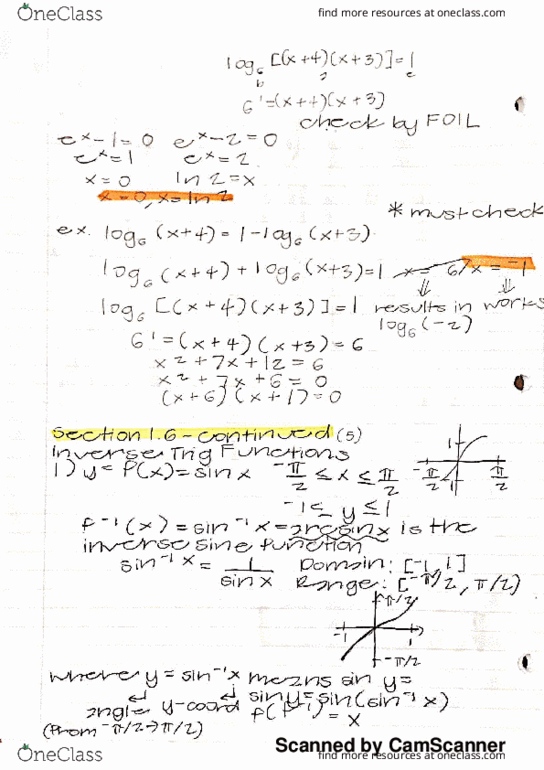 OneClass
find more resources at oneclass.com
log₆ [(x+4)(x+3)]=1
6¹=(x+4)(x+3)
check by FOIL
eˣ-1=0 eˣ-2=0
eˣ=1 eˣ=2
x=0 ln 2=x
x=0, x=ln 2
* must check
ex. log₆ (x+4) = 1-log₆ (x+3)
log₆ (x+4) + log₆ (x+3)=1 x=-6, x=-1
log₆ [(x+4)(x+3)]=1 results in works
log₆(-2)
6¹=(x+4)(x+3)=6
x²+7x+12=6
x²+7x+6=0
(x+6)(x+1)=0
Section 1.6-continued (5)
Inverse Trig Functions
1) y=f(x)=sin x -π/2 ≤ x ≤ π/2
1 -π/2 π/2 -1
-1 ≤ y ≤ 1
f⁻¹(x)=sin⁻¹x=arcsinx is the
inverse sine function
sin⁻¹x = 1/sin x Domain: [-1, 1]
Range: [-π/2, π/2)
π/2
-1 1
-π/2
where y=sin⁻¹x means sin y=
angle y-coord sin y=sin(sin⁻¹x)
f(f⁻¹) = x
(from -π/2→π/2)
Scanned by CamScanner
OneClass
find more resources at oneclass.com